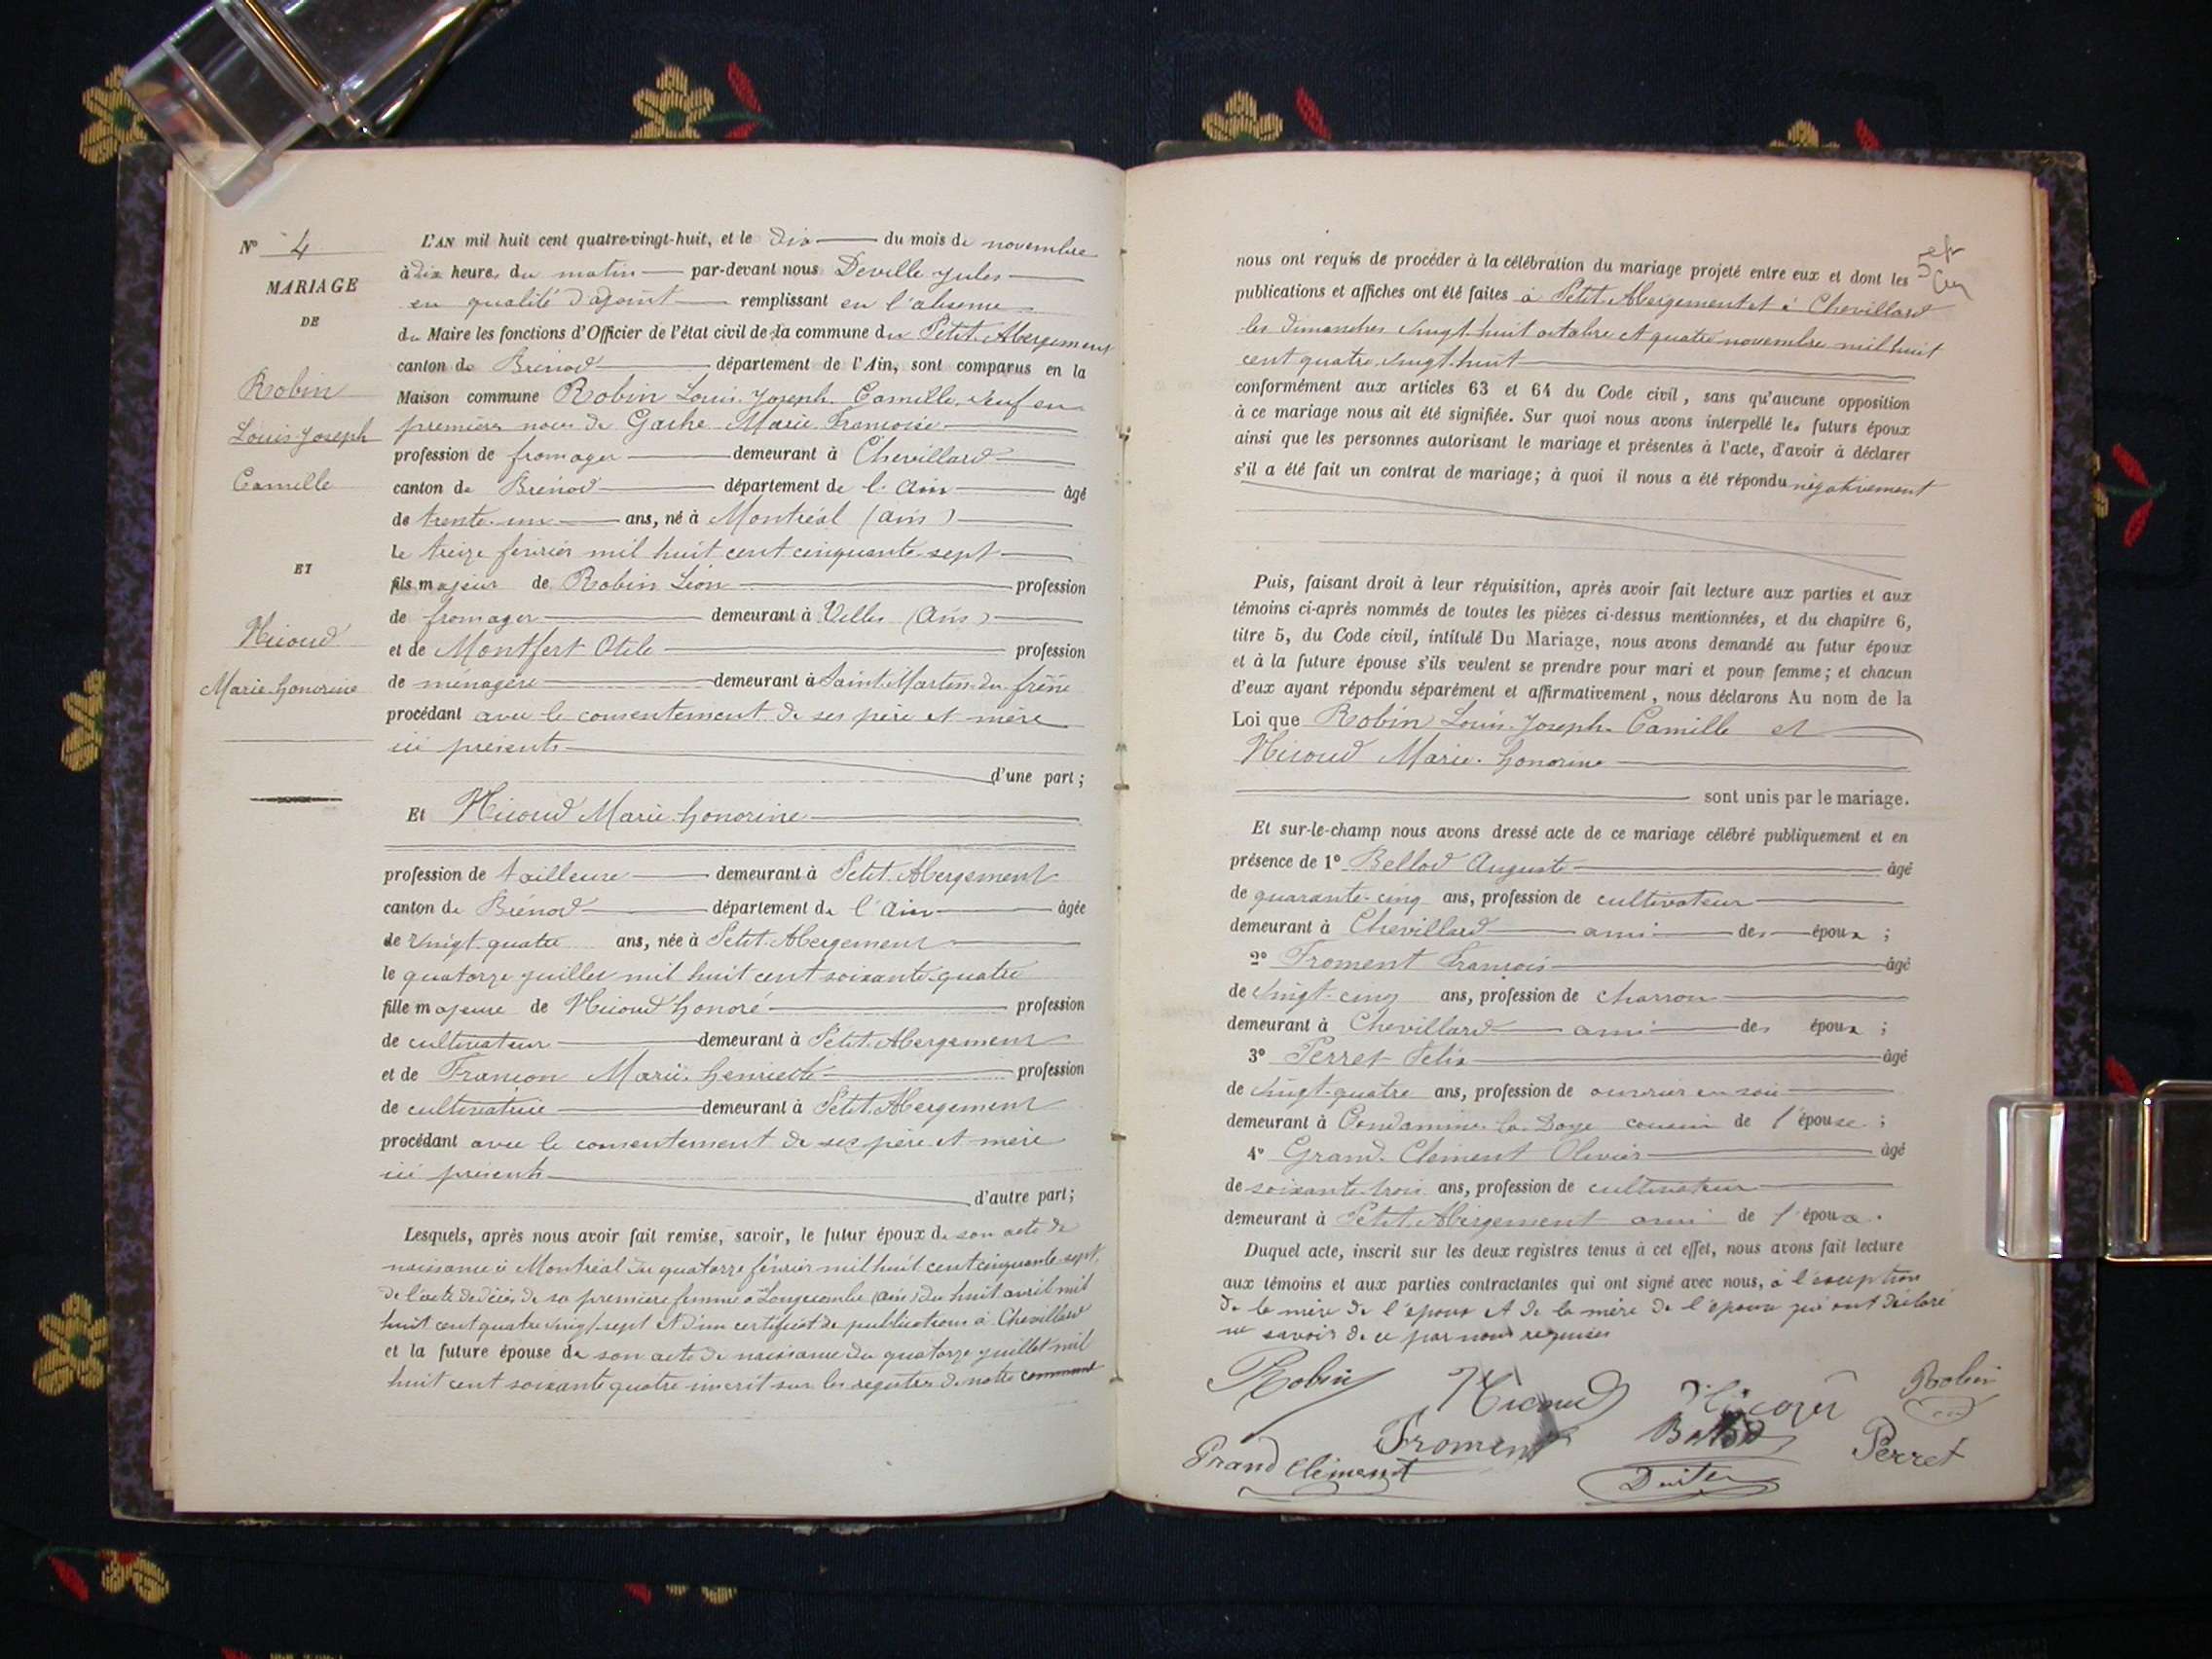 N° 4
MARIAGE
DE
Robin
Louis Joseph
Camille
ET
Nicoud
Marie honorine
L'AN mil huit cent quatre-vingt-huit, et le dix du mois de novembre
à dix heures du matin par-devant nous Deville Jules
en qualité d'adjoint remplissant en l'absence
du Maire les fonctions d'Officier de l'état civil de la commune du Petit Abergement
canton de Brénod département de l'Ain, sont comparus en la
Maison commune Robin Louis Joseph Camille veuf en
premières noces de Gache Marie Francoise
profession de fromager demeurant à Chevillard
canton de Brénod département de l'Ain âgé
de trente un ans, né à Montréal (Ain)
le treize février mil huit cent cinquante sept
fils majeur de Robin Léon profession
de fromager demeurant à (Ain)
et de Montfert profession
de ménagère demeurant à Saint Martin du frêne
procédant avec le consentement de ses père et mère
ici présents
d'une part;
Et Nicoud Marie honorine
profession de tailleuse demeurant à Petit Abergement
canton de Brénod département de l'Ain âgée
de vingt quatre ans, née à Petit Abergement
le quatorze juillet mil huit cent soixante quatre
fille majeure de Nicoud honoré profession
de cultivateur demeurant à Petit Abergement
et de Francon Marie henriette profession
de cultivatrice demeurant à Petit Abergement
procédant avec le consentement de ses père et mère
ici présents
d'autre part;
Lesquels, après nous avoir fait remise, savoir, le futur époux de son acte de
naissance à Montréal du quatorze février mil huit cent cinquante sept,
de l'acte de décès de sa première femme à Songieu (Ain) du huit avril mil
huit cent quatre vingt sept et d'un certificat de publications à Chevillard
et la future épouse de son acte de naissance du quatorze juillet mil
huit cent soixante quatre inscrit sur les registres de notre commune
nous ont requis de procéder à la célébration du mariage projeté entre eux et dont les
publications et affiches ont été faites à Petit Abergement et à Chevillard
les dimanches vingt huit octobre et quatre novembre mil huit
cent quatre vingt huit
conformément aux articles 63 et 64 du Code civil, sans qu'aucune opposition
à ce mariage nous ait été signifiée. Sur quoi nous avons interpellé les futurs époux
ainsi que les personnes autorisant le mariage et présentes à l'acte, d'avoir à déclarer
s'il a été fait un contrat de mariage; à quoi il nous a été répondu négativement
Puis, faisant droit à leur réquisition, après avoir fait lecture aux parties et aux
témoins ci-après nommés de toutes les pièces ci-dessus mentionnées, et du chapitre 6,
titre 5, du Code civil, intitulé Du Mariage, nous avons demandé au futur époux
et à la future épouse s'ils veulent se prendre pour mari et pour femme; et chacun
d'eux ayant répondu séparément et affirmativement, nous déclarons Au nom de la
Loi que Robin Louis Joseph Camille et
Nicoud Marie honorine
sont unis par le mariage.
Et sur-le-champ nous avons dressé acte de ce mariage célébré publiquement et en
présence de 1° Bellod Auguste âgé
de quarante-cinq ans, profession de cultivateur
demeurant à Chevillard ami des époux;
2° Froment François âgé
de vingt-cinq ans, profession de charron
demeurant à Chevillard ami des époux;
3° Perret Félix âgé
de vingt-quatre ans, profession de ouvrier en soie
demeurant à Condamine la Doye cousin de l'épouse;
4° Grand Clement Olivier âgé
de soixante trois ans, profession de cultivateur
demeurant à Petit Abergement ami de l'époux.
Duquel acte, inscrit sur les deux registres tenus à cet effet, nous avons fait lecture
aux témoins et aux parties contractantes qui ont signé avec nous, à l'exception
de la mère de l'époux et de la mère de l'épouse qui ont déclaré
ne savoir de ce par nous requises
Robin Nicoud Robin
Froment Perret
Grand Clément